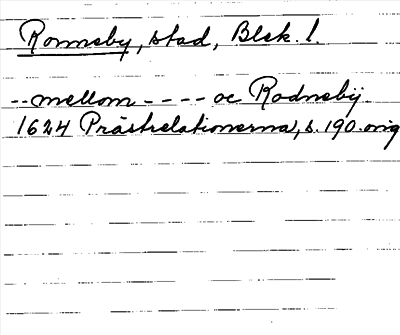 Ronneby, stad, Blek. l.
-- mellom ---- oc Rodnebÿ
1624 Prästrelationerna, s. 190. orig